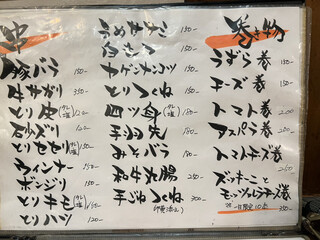 串
豚バラ 150-
牛サガリ 350-
とり皮(タレ・塩) 120-
砂ズリ 120-
とりセセリ(タレ・塩) 150-
ウインナー 150-
ボンジリ 150-
とりキモ(タレ・塩) 150-
とりハツ 120-
うめササミ 150-
白ネギ 150-
ヤゲンナンコツ 150-
とりつくね 150-
四ツ身(タレ・塩) 150-
手羽先 200-
みそバラ 180-
和牛丸腸 250-
手ごねつくね 300-
巻き物
うずら巻 150-
チーズ巻 150-
トマト巻 200-
アスパラ巻 200-
トマトチーズ巻 250-
ズッキーニと
モッツァレラチーズ巻
一日限定10本 350-